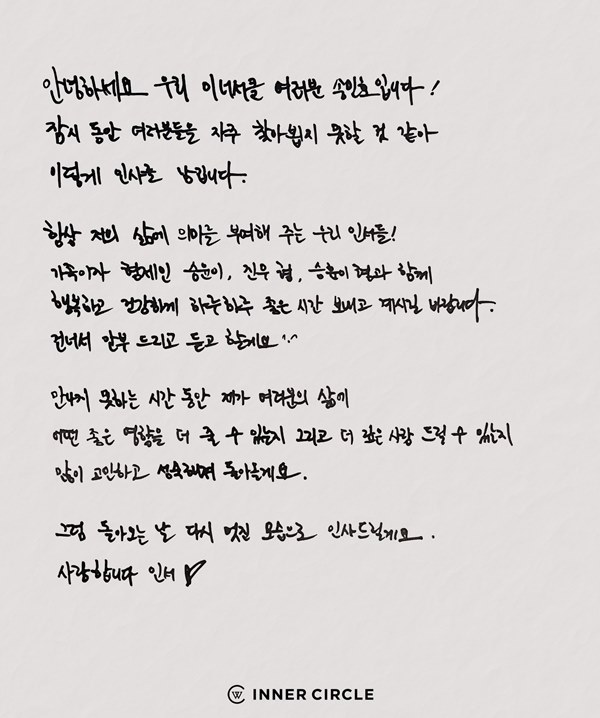 안녕하세요 우리 이너서클 여러분 송민호입니다!
잠시 동안 여러분들을 자주 찾아뵙지 못할 것 같아
이렇게 인사를 남깁니다.
항상 저의 삶에 의미를 부여해 주는 우리 인서들!
가족이자 형제인 승윤이, 진우 형, 승훈이 형과 함께
행복하고 건강하게 하루하루 좋은 시간 보내고 계시길 바랍니다.
건너서 안부 드리고 듣고 할게요 ^^
만나지 못하는 시간 동안 제가 여러분의 삶에
어떤 좋은 영향을 더 줄 수 있는지 그리고 더 깊은 사랑 드릴 수 있는지
많이 고민하고 성숙해져 돌아올게요.
그럼 돌아오는 날 다시 멋진 모습으로 인사드릴게요.
사랑합니다 인서 ♡
INNER CIRCLE